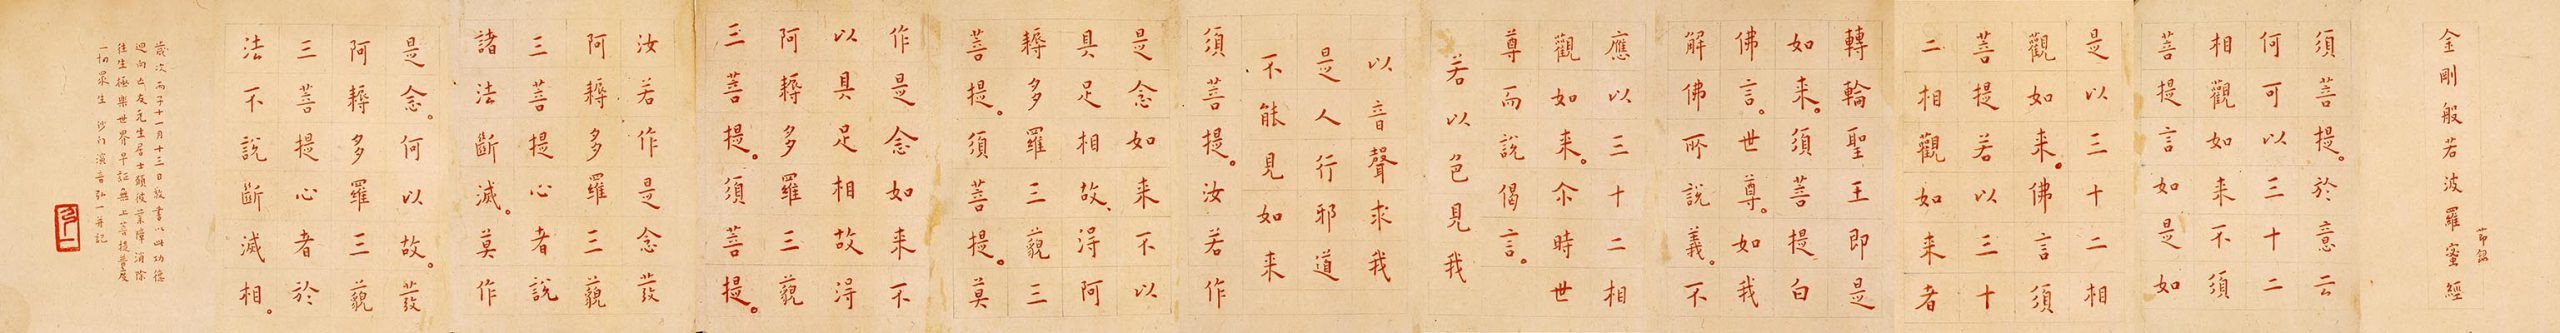 金剛般若波羅蜜經
節錄
須菩提。於意云
何可以三十二
相觀如来不須
菩提言如是如
是以三十二相
觀如来。佛言須
菩提若以三十
二相觀如来者
轉輪聖王即是
如来。須菩提白
佛言。世尊。如我
解佛所說義。不
應以三十二相
觀如来。尒時世
尊而說偈言。
若以色見我
以音聲求我
是人行邪道
不能見如来
須菩提。汝若作
是念如来不以
具足相故、淂阿
耨多羅三藐三
菩提。須菩提。莫
作是念如来不
以具足相故淂
阿耨多羅三藐
三菩提。須菩提。
汝若作是念發
阿耨多羅三藐
三菩提心者說
諸法斷滅。莫作
是念。何以故。發
阿耨多羅三藐
三菩提心者於
法不說斷滅相。
歲次丙子十一月十三日敬書以此功德
迴向亡友元生居士願彼業障消除
往生極樂世界早証無上菩提普度
一切眾生 沙门演音弘一并記
弘一